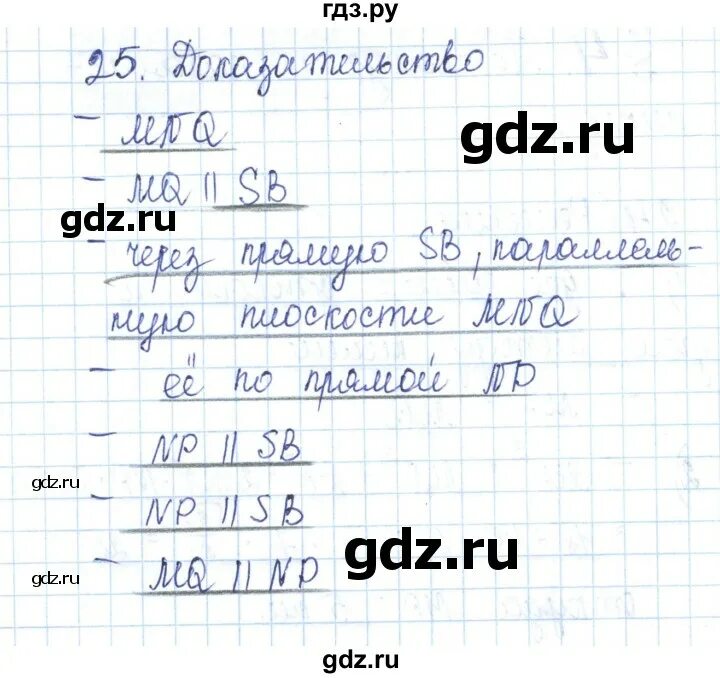 гдз.ру
25. Доказательство
- MNQ
gdz.ru
- MQ || SB
gdz.ru
- через прямую SB, параллель-
ную плоскости MNQ
- её по прямой NP
- NP || SB
gdz.ru
- NP || SB
gdz.ru
- MQ || NP
gdz.ru
gdz.ru